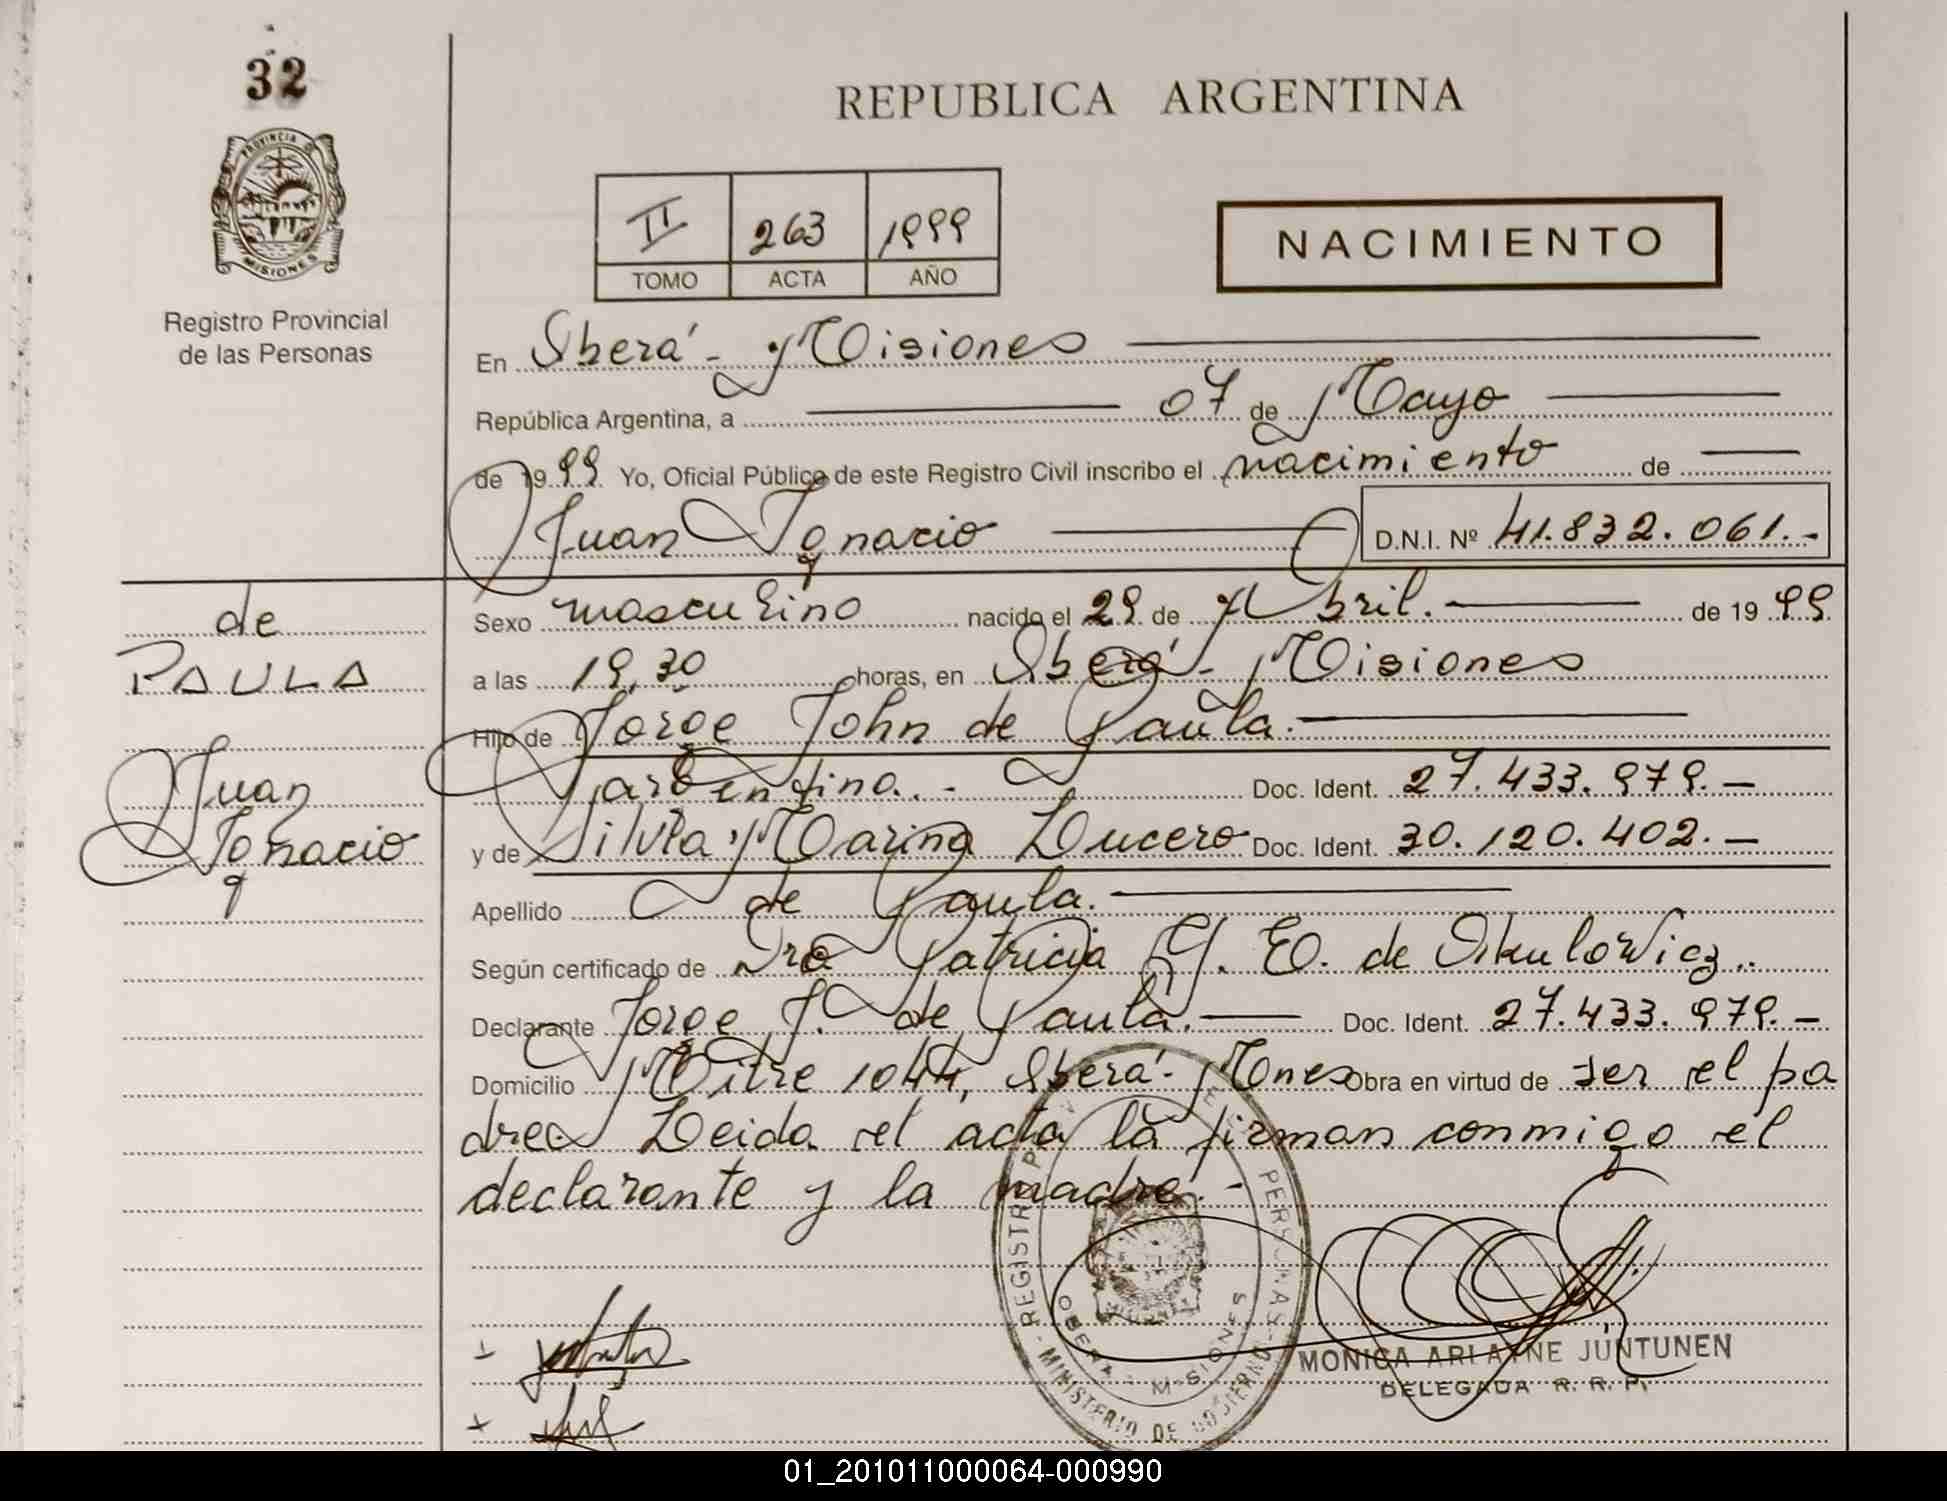 32
PROVINCIA DE
MISIONES
Registro Provincial
de las Personas
REPUBLICA ARGENTINA
II 263 1999
TOMO ACTA AÑO
NACIMIENTO
En Oberá - Misiones
República Argentina, a 07 de Mayo
de 1999 Yo, Oficial Público de este Registro Civil inscribo el nacimiento de
Juan Ignacio D.N.I. Nº 41.832.061.-
de
PAULA
Juan
Ignacio
Sexo masculino nacido el 29 de Abril. de 1999
a las 19,30 horas, en Oberá - Misiones
Hijo de Jorge John de Paula.
argentino. - Doc. Ident. 27.433.979.-
y de Silvia Marina Lucero Doc. Ident. 30.120.402.-
Apellido de Paula.
Según certificado de Dra Patricia G. E. de Okulowicz.
Declarante Jorge J. de Paula. Doc. Ident. 27.433.979.-
Domicilio Mitre 1044, Oberá - Mnes Obra en virtud de ser el pa
dre. Leida el acta la firman conmigo el
declarante y la madre. -
REGISTRO PROV DE LAS PERSONAS - MINISTERIO DE GOBIERNO -
OBERA - MISIONES
MONICA ARLAYNE JUNTUNEN
DELEGADA R. R. P.
01_201011000064-000990